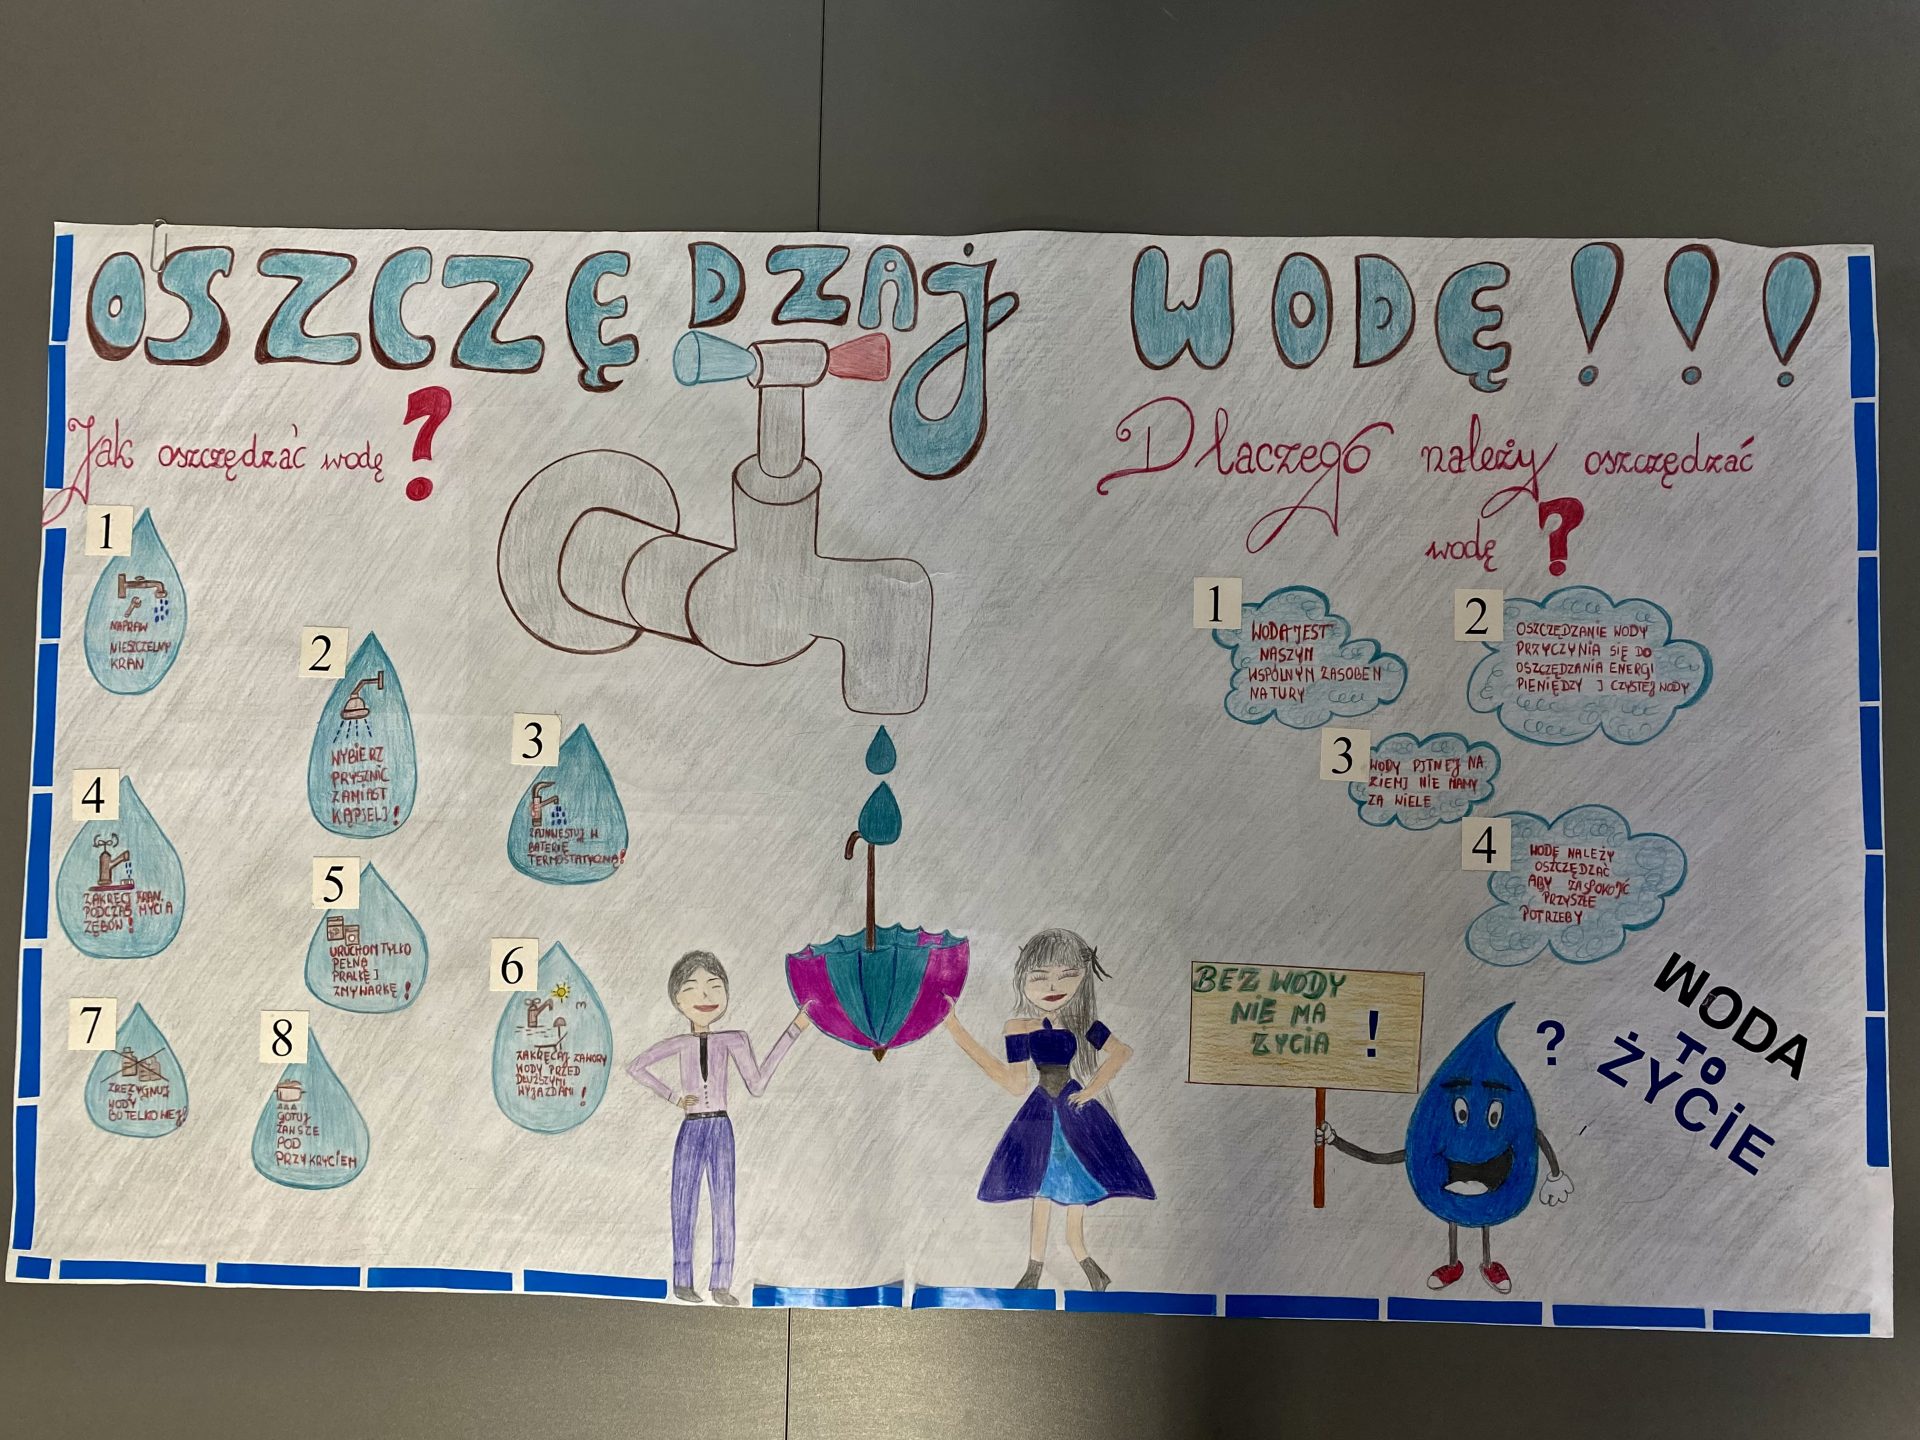 OSZCZĘDZAJ WODĘ!!!
Jak oszczędzać wodę?
1
NAPRAW
NIESZCZELNY
KRAN
2
WYBIERZ
PRYSZNIC
ZAMIAST
KĄPIELI!
3
ZAINWESTUJ W
BATERIĘ
TERMOSTATYCZNĄ!
4
ZAKRĘCJ KRAN.
PODCZAS MYCIA
ZĘBÓW!
5
URUCHOM TYLKO
PEŁNĄ
PRALKĘ I
ZMYWARKĘ!
6
ZAKRĘCAJ ZAWORY
WODY PRZED
DŁUŻSZYMI
WYJAZDAMI!
7
ZREZYGNUJ
Z
WODY
BUTELKOWEJ!
8
GOTUJ
ZAWSZE
POD
PRZYKRYCIEM
Dlaczego należy oszczędzać
wodę?
1
WODA JEST
NASZYM
WSPÓLNYM ZASOBEM
NATURY
2
OSZCZĘDZANIE WODY
PRZYCZYNIA SIĘ DO
OSZCZĘDZANIA ENERGI
PIENIĘDZY I CZYSTEJ WODY
3
WODY PITNEJ NA
ZIEMI NIE MAMY
ZA WIELE
4
WODĘ NALEŻY
OSZCZĘDZAĆ
ABY ZASPOKOIĆ
PRZYSZŁE
POTRZEBY
BEZ WODY
NIE MA
ŻYCIA !
?
WODA
TO
ŻYCIE